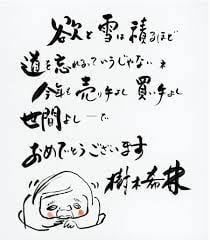 欲と雪は積るほど
道を忘れるっていうじゃない ネ
今年も売り手よし 買い手よし
世間よしーで
おめでとうございます
樹木希林